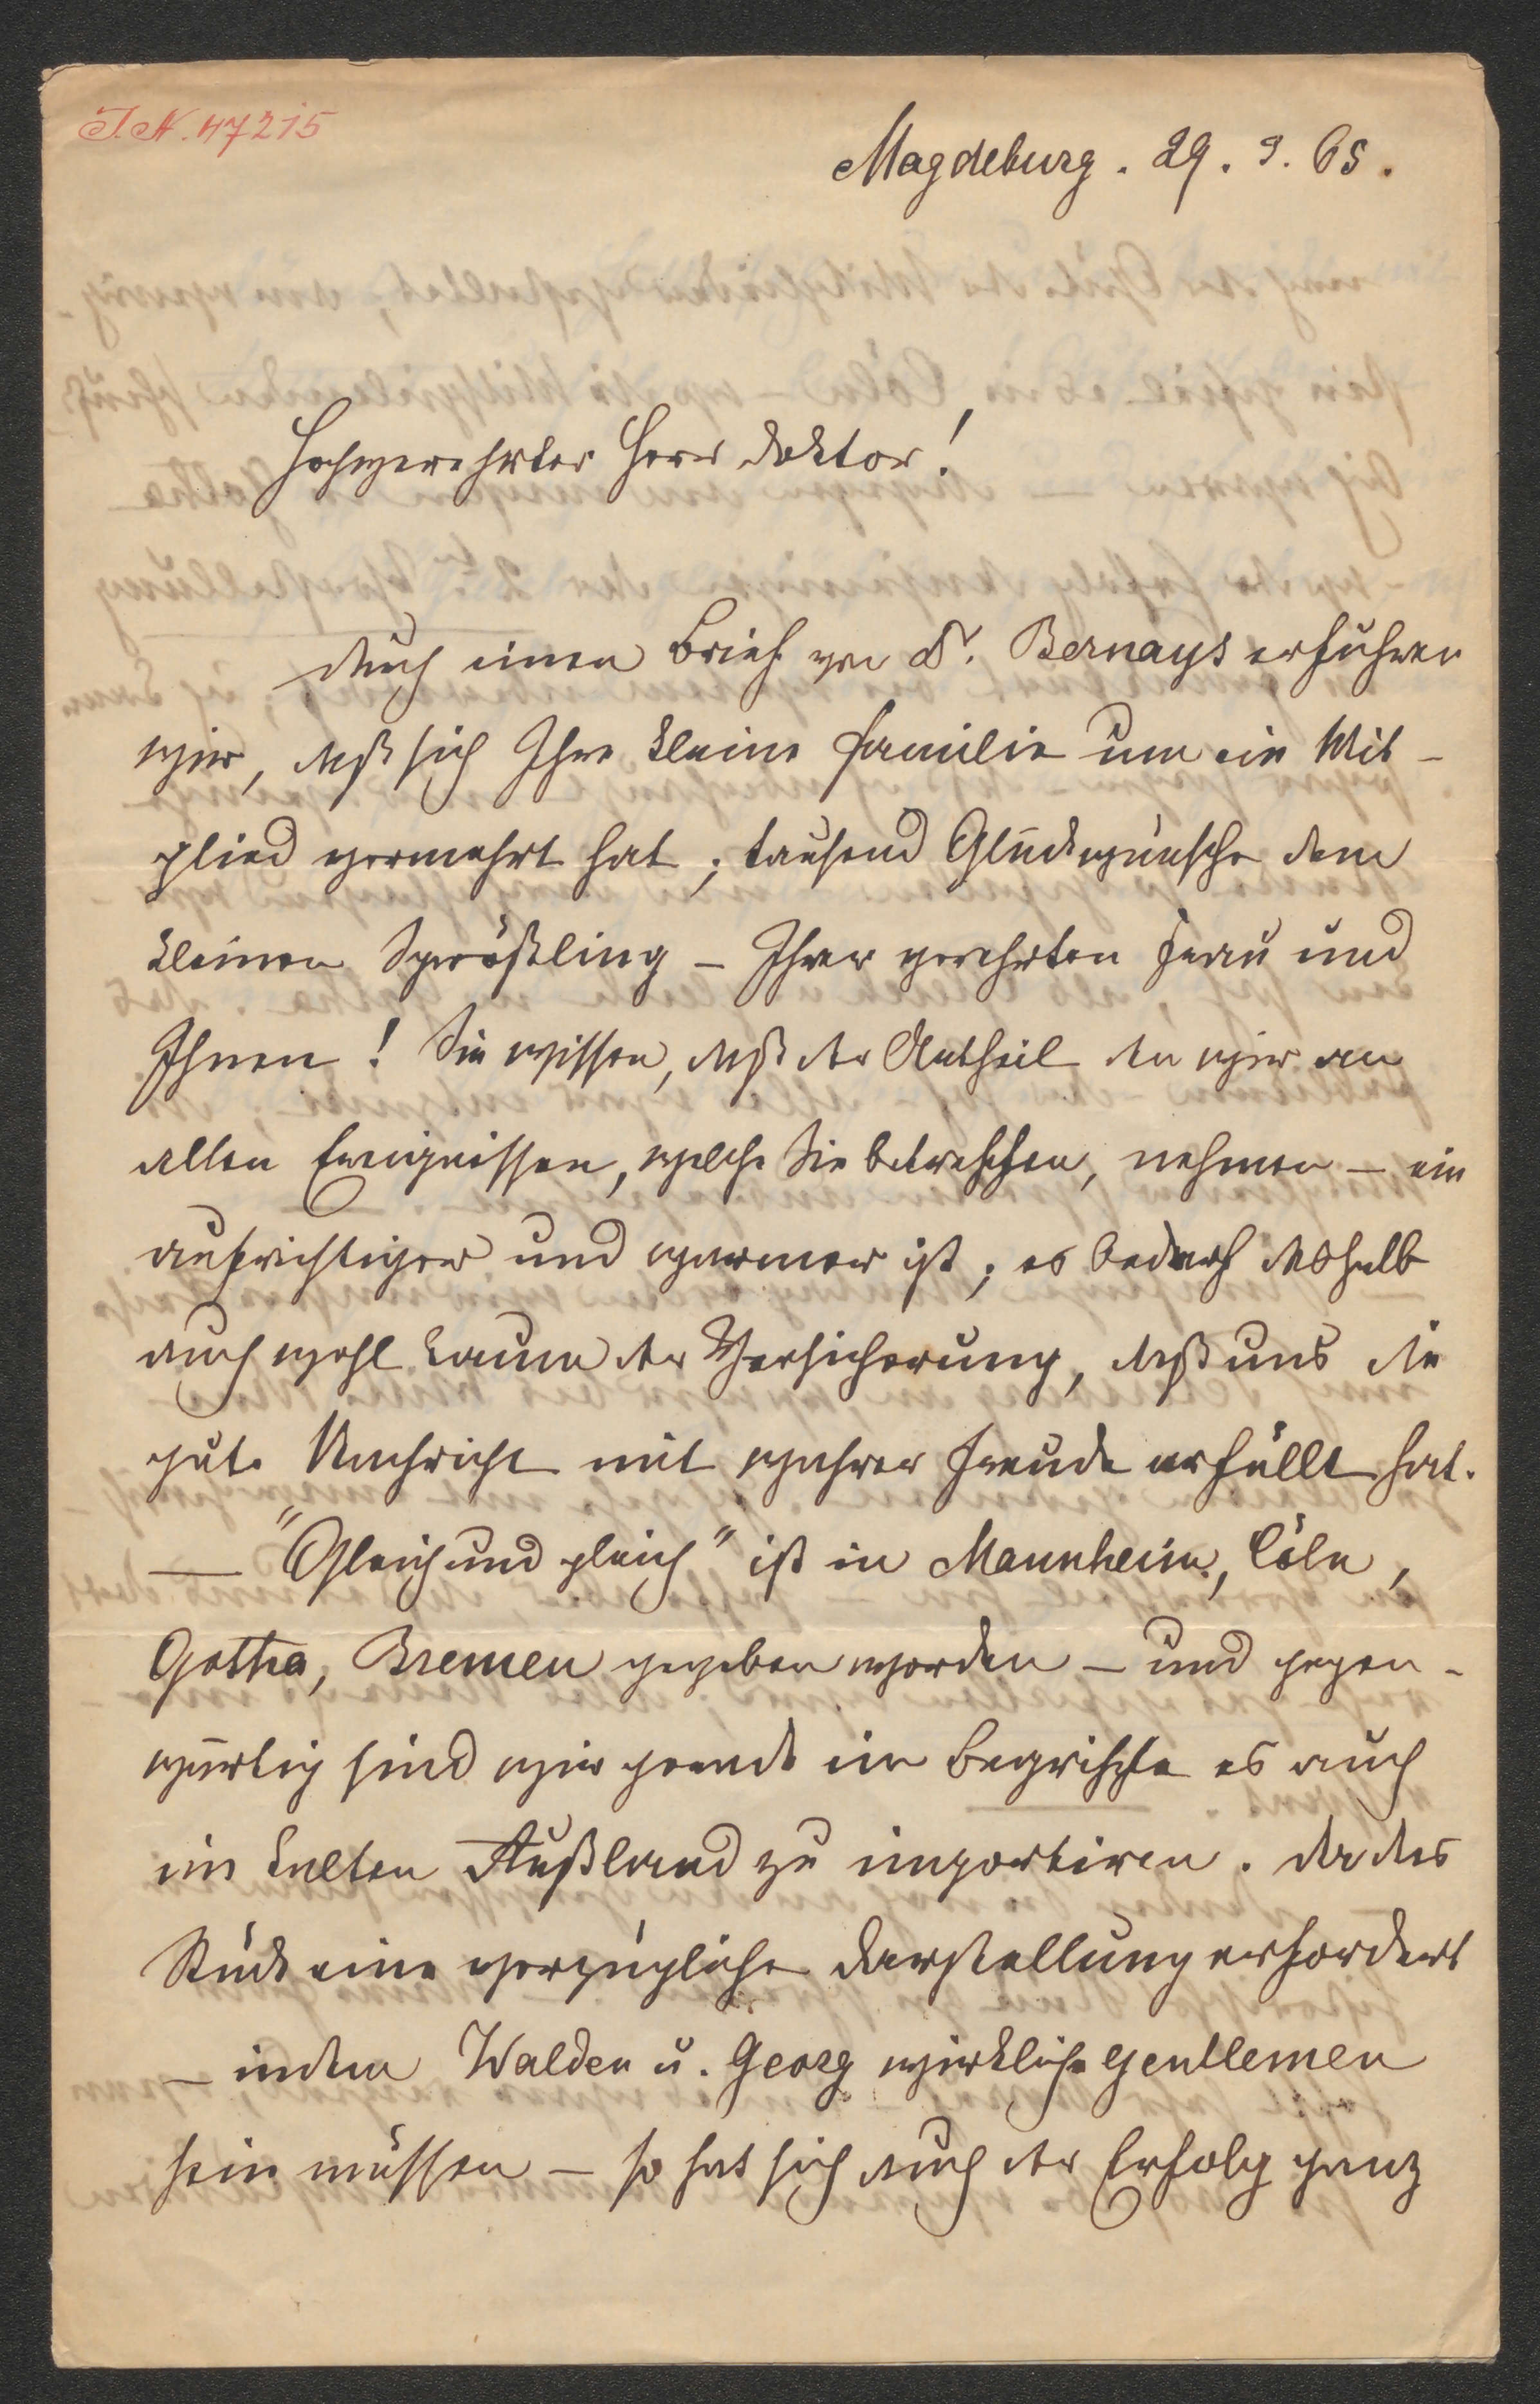 J.N. 47215
Magdeburg. 29. 9. 65.
Hochverehrter Herr Doktor!
Durch einen Brief von Dr. Bernays erfuhren
wir, daß sich Ihre kleine Familie um ein Mit-
glied vermehrt hat; tausend Glückwünsche dem
kleinen Sprößling – Ihrer verehrten Frau und
Ihnen! Sie wissen, daß der Antheil den wir an
allen Ereignissen, welche Sie betreffen, nehmen – ein
aufrichtiger und warmer ist; es bedarf deshalb
auch wohl kaum der Versicherung, daß uns die
gute Nachricht mit wahrer Freude erfüllt hat.
— "Gleich und gleich" ist in Mannheim, Cöln,
Gotha, Bremen gegeben worden – und gegen-
wärtig sind wir gerade im Begriffe es auch
im kalten Rußland zu importiren. Da das
Stück eine vorzügliche Darstellung erfordert
– indem Walden u. Georg wirkliche Gentlemen
sein müssen – so hat sich auch der Erfolg ganz